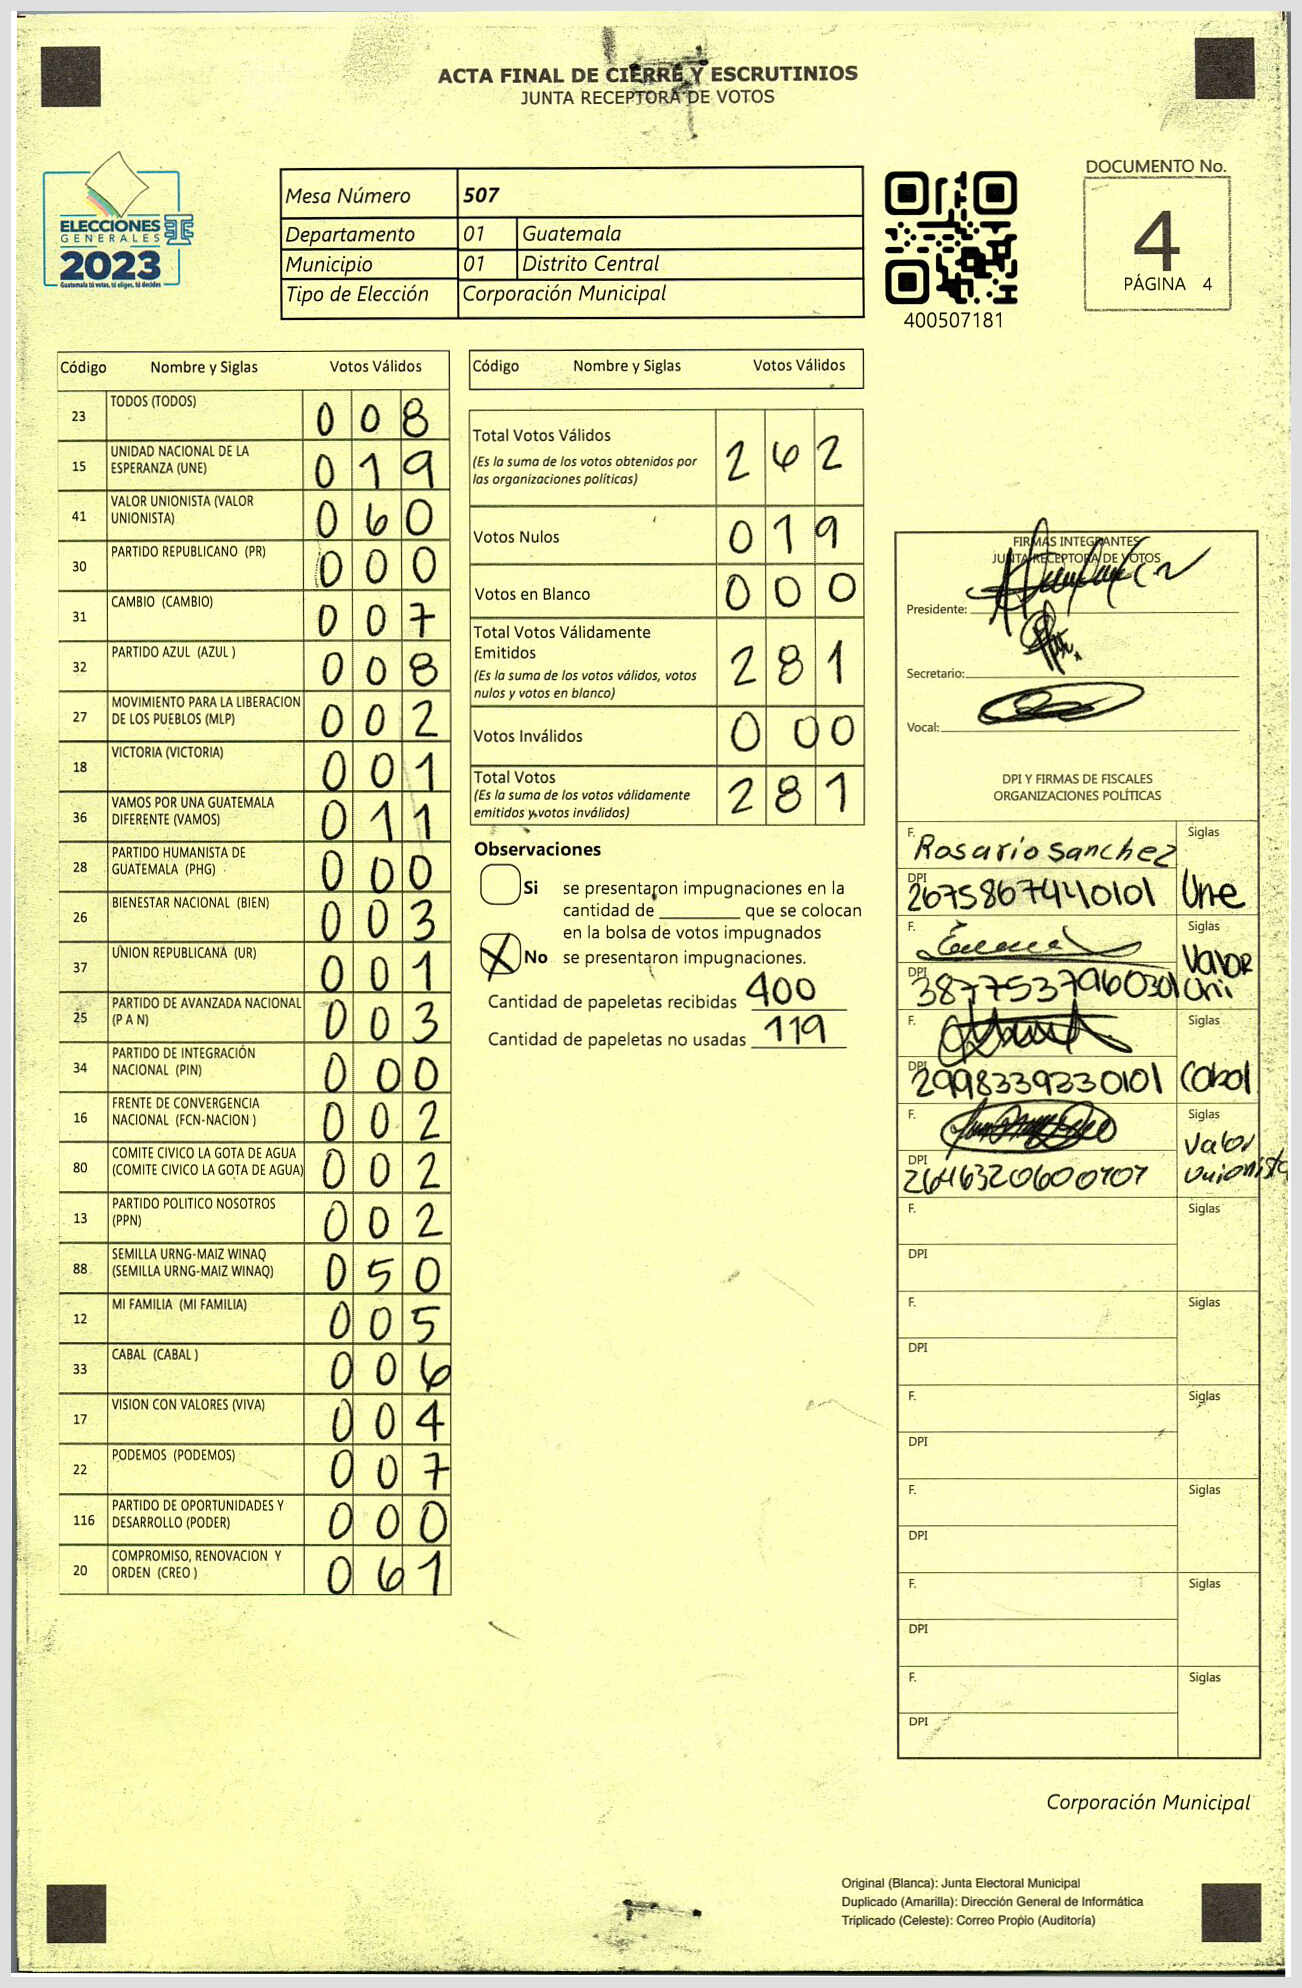 ACTA FINAL DE CIERRE Y ESCRUTINIOS
JUNTA RECEPTORA DE VOTOS
ELECCIONES
GENERALES
2023
Guatemala tú votas, tú eliges, tú decides
Mesa Número 507
Departamento 01 Guatemala
Municipio 01 Distrito Central
Tipo de Elección Corporación Municipal
400507181
DOCUMENTO No.
4
PÁGINA 4
Código Nombre y Siglas Votos Válidos
23 TODOS (TODOS) 0 0 8
15 UNIDAD NACIONAL DE LA
ESPERANZA (UNE) 0 1 9
41 VALOR UNIONISTA (VALOR
UNIONISTA) 0 6 0
30 PARTIDO REPUBLICANO (PR) 0 0 0
31 CAMBIO (CAMBIO) 0 0 7
32 PARTIDO AZUL (AZUL ) 0 0 8
27 MOVIMIENTO PARA LA LIBERACION
DE LOS PUEBLOS (MLP) 0 0 2
18 VICTORIA (VICTORIA) 0 0 1
36 VAMOS POR UNA GUATEMALA
DIFERENTE (VAMOS) 0 1 1
28 PARTIDO HUMANISTA DE
GUATEMALA (PHG) 0 0 0
26 BIENESTAR NACIONAL (BIEN) 0 0 3
37 UNION REPUBLICANA (UR) 0 0 1
25 PARTIDO DE AVANZADA NACIONAL
(P A N) 0 0 3
34 PARTIDO DE INTEGRACIÓN
NACIONAL (PIN) 0 0 0
16 FRENTE DE CONVERGENCIA
NACIONAL (FCN-NACION ) 0 0 2
80 COMITE CIVICO LA GOTA DE AGUA
(COMITE CIVICO LA GOTA DE AGUA) 0 0 2
13 PARTIDO POLITICO NOSOTROS
(PPN) 0 0 2
88 SEMILLA URNG-MAIZ WINAQ
(SEMILLA URNG-MAIZ WINAQ) 0 5 0
12 MI FAMILIA (MI FAMILIA) 0 0 5
33 CABAL (CABAL ) 0 0 6
17 VISION CON VALORES (VIVA) 0 0 4
22 PODEMOS (PODEMOS) 0 0 7
116 PARTIDO DE OPORTUNIDADES Y
DESARROLLO (PODER) 0 0 0
20 COMPROMISO, RENOVACION Y
ORDEN (CREO ) 0 6 1
Código Nombre y Siglas Votos Válidos
Total Votos Válidos 2 6 2
(Es la suma de los votos obtenidos por
las organizaciones políticas)
Votos Nulos 0 1 9
Votos en Blanco 0 0 0
Total Votos Válidamente
Emitidos 2 8 1
(Es la suma de los votos válidos, votos
nulos y votos en blanco)
Votos Inválidos 0 0 0
Total Votos 2 8 1
(Es la suma de los votos válidamente
emitidos y votos inválidos)
Observaciones
Si se presentaron impugnaciones en la
cantidad de ________ que se colocan
en la bolsa de votos impugnados
X No se presentaron impugnaciones.
Cantidad de papeletas recibidas 400
Cantidad de papeletas no usadas 119
FIRMAS INTEGRANTES
JUNTA RECEPTORA DE VOTOS
Presidente:
Secretario:
Vocal:
DPI Y FIRMAS DE FISCALES
ORGANIZACIONES POLÍTICAS
F. Rosario Sanchez Siglas
DPI 2675867440101 Une
F. Siglas
DPI 3877537960301 Valor Uni
F. Siglas
DPI 2998339230101 Cabal
F. Siglas
DPI 2646320600707 Valor Unionista
F. Siglas
DPI
F. Siglas
DPI
F. Siglas
DPI
F. Siglas
DPI
F. Siglas
DPI
F. Siglas
DPI
Corporación Municipal
Original (Blanca): Junta Electoral Municipal
Duplicado (Amarilla): Dirección General de Informática
Triplicado (Celeste): Correo Propio (Auditoría)